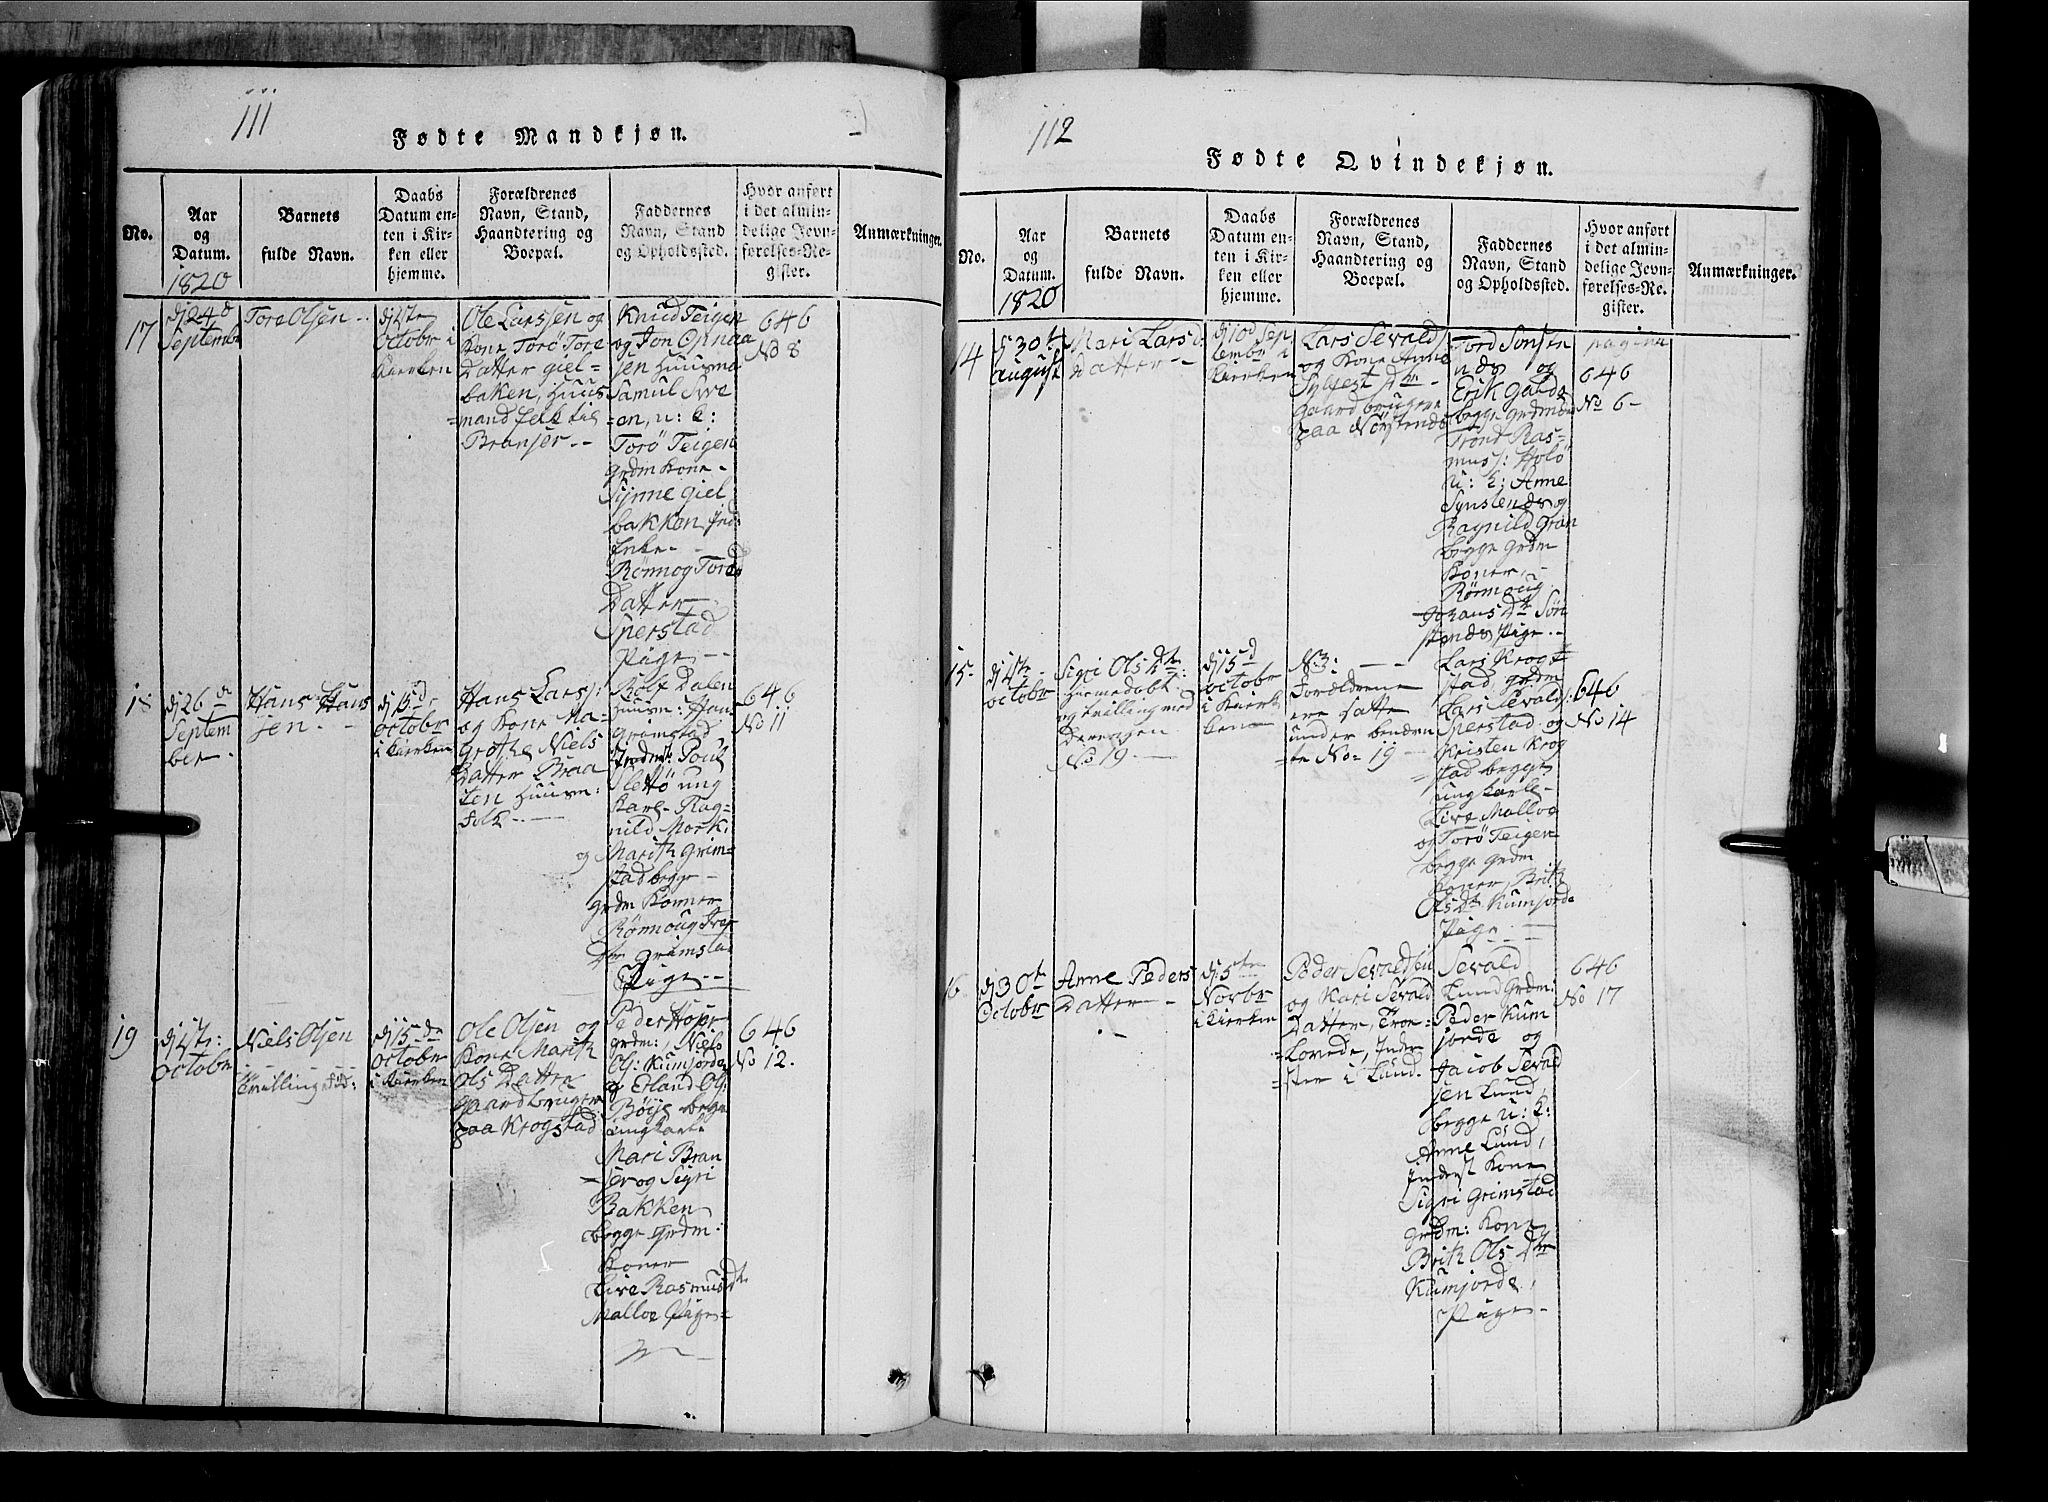 111
Fødte Mandkjøn.
No.
Aar
og
Datum.
1820
Barnets
fulde Navn.
Daabs
Datum en-
ten i Kir-
ken eller
hjemme.
Forældrenes
Navn, Stand,
Haandtering og
Boepæl.
Faddernes
Navn, Stand
og Opholdssted.
Hvor anført
i det almin-
delige Jevn-
førelses-Re-
gister.
Anmærkninger.
17
dj 24d
Septembr
Tore Olsen
dj 4te
Octobr i
Kierken
Ole Larssen og
Kone Torö Tore
Datter giel=
baken, Huus
=mand folk til
Branser
Knud Teigen
og Jon Opnaa
sen Huusma
Samul Sve
=en, u: k:
Torö Teigen
grdm Kone
Synne giel
bakken Ind
Enke
Rönnog Tores
Datter
Sperstad
Pige
646
No 8
18
dj 26de
Septem
ber
Hans Hans
sen
dj 15d
octobr
i Kierken
Hans Larss:
og Kone Ma-
grethe Niels
Datter Braa
ten Huusm:
folk
Rolf Dalen
Huusm: Han
Grimstad
Poul
Slettö ung
Karl Rag-
nild Mork
og Marith Grim=
stad begge
grdm Konner
Rönnoug Iver
Dtr Grimstad
Pige
646
No 11
19
dj 4te:
octobr
Niels Olsen
Tvilling
dj 15de
octobr
i Kierken
Ole Olsen og
Kone Marith
Ols Datter
gaardbruger
paa Krogstad
Peder Hopr
grdm:, Niels
Ols: Kumjorde
og Erland Ols:
Böye begge
ungkarle
Mari Bran
=ser og Sigri
Bakken
begge grdm:
Koner
Live Rasmusdt
Malloe Pige
646
No 12.
112
Fødte Qvindekjøn.
No.
Aar
og
Datum.
1820
Barnets
fulde Navn.
Daabs
Datum en-
ten i Kir-
ken eller
hjemme.
Forældrenes
Navn, Stand,
Haandtering og
Boepæl.
Faddernes
Navn, Stand
og Opholdssted.
Hvor anført
i det almin-
delige Jevn-
førelses-Re-
gister.
Anmærkninger.
14
dj 30t
August
Mari Lars
Datter
dj 10d Sep
tembr i
Kierken
Lars Sevalds
og Kone Anne
Sylfest Dtr
gaardbrugere
paa Nörstendö
Tord Sönsten
næs og
Erik Galde
begge grdmænd
Trond Ras=
mus: Holö
u: k: Anne
Synstenæs og
Ragnild Grön
begge grdm
Koner,
Rönnoug
Johans Dtr Sön
stenæs Pige
pagina
646
No 6
15
dj 4te
octobr
Sigri Ols Dtr
hiemedöbt
og tvilling med
Drengen
No 19
dj 15d
octobr
i Kierk
ken
N.3:
Foreldrene
ere satte
under benævn
=te No 19
Lars Krog
stad, grdm
Lars Sevalds:
Sperstad og
Kristen Krog
=stad begge
ungkarle
Live Malloe
og Torö Teigen
begge grdm
Koner, Brith
Ols Dtr Kumjorde
Pige
646
No 14
16
dj 30t
Octobr
Anne Peders
Datter
dj 5te
Novbr
i Kierken
Peder Sevaldsen
og Kari Sevald
Datter, Troe=
=lovede, Inder
=ster i Lund.
Sevald
Lund grdm:
Peder Kum
jorde og
Jacob Sevald
sen Lund,
begge u: k:
Anne Lund,
Inderst Kone
Sigri Grimstad
grdm: Kone
Brith Ols Dtr
Kumjorde,
Pige
646
No 17